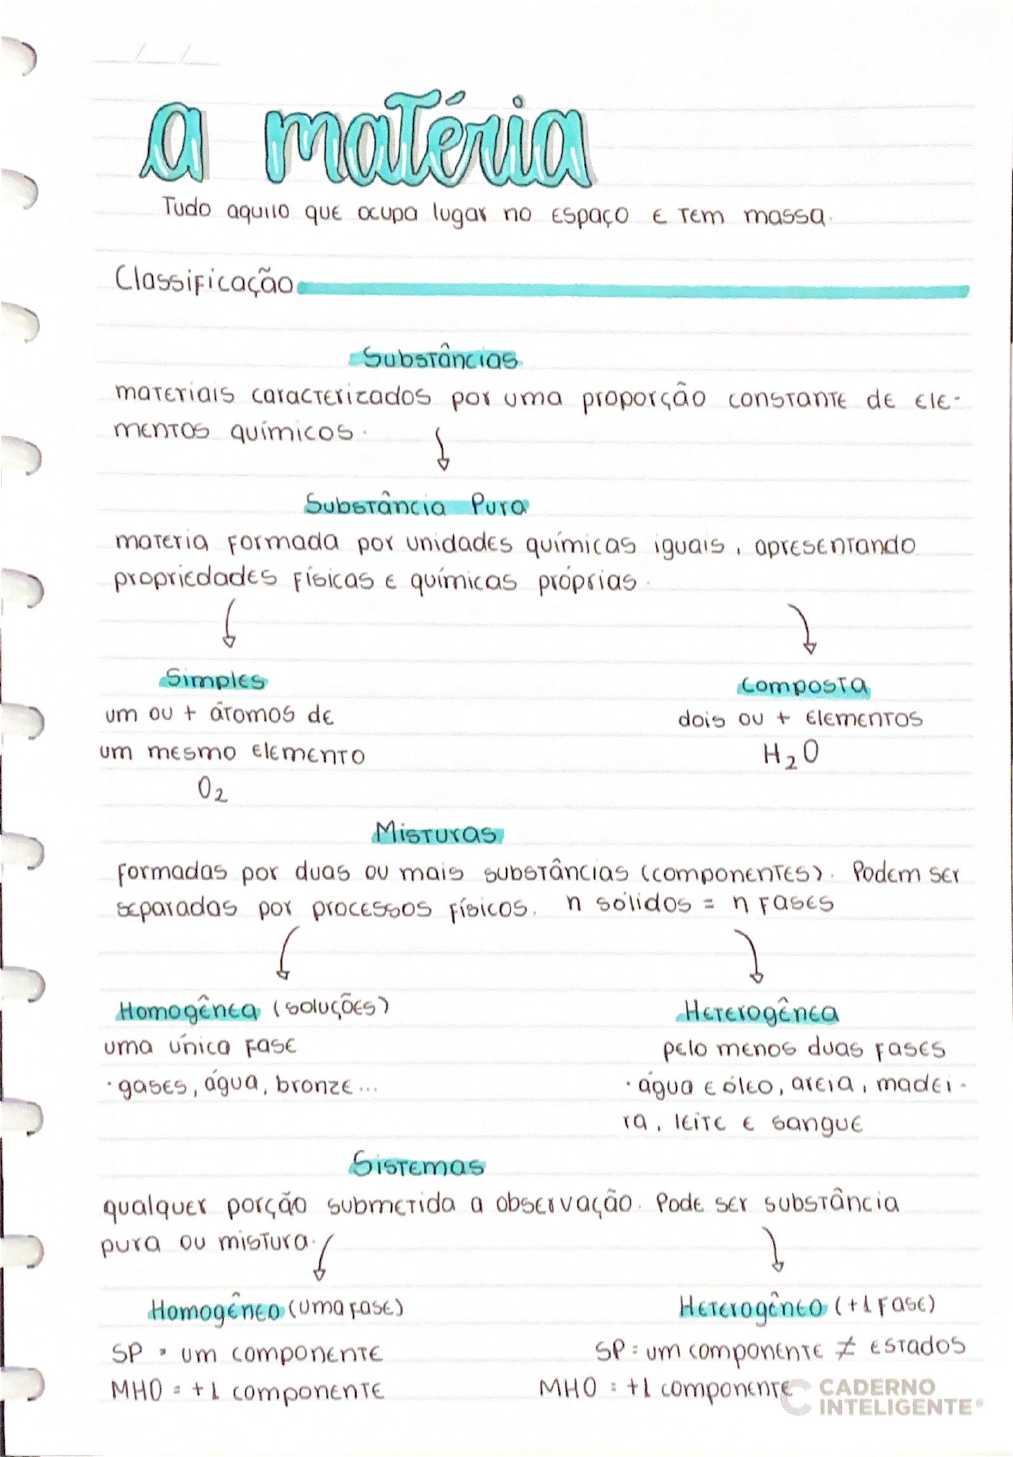 a matéria
Tudo aquilo que ocupa lugar no espaço e tem massa.
Classificação
Substâncias
materiais caracterizados por uma proporção constante de ele-
mentos químicos.
Substância Pura
materia formada por unidades químicas iguais, apresentando
propriedades físicas e químicas próprias.
Simples
Composta
um ou + átomos de
dois ou + elementos
um mesmo elemento
H₂O
O₂
Misturas
formadas por duas ou mais substâncias (componentes). Podem ser
separadas por processos físicos. n sólidos = n fases
Homogênea (soluções)
Heterogênea
uma única fase
pelo menos duas fases
· gases, água, bronze...
· água e óleo, areia, madei-
ra, leite e sangue
Sistemas
qualquer porção submetida a observação. Pode ser substância
pura ou mistura.
Homogêneo (uma fase)
Heterogêneo (+1 fase)
SP = um componente
SP = um componente ≠ estados
MHO = +1 componente
MHO = +1 componente
CADERNO
INTELIGENTE®